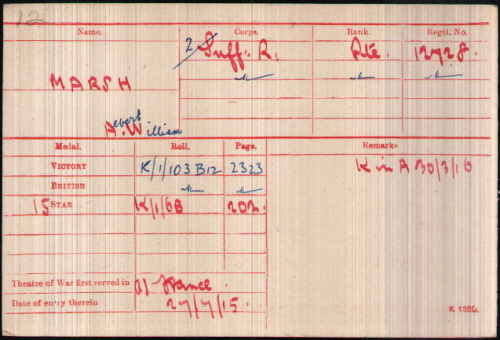 12
Name. Corps. Rank. Regtl. No.
2/ Suff. R. Pte. 12728
MARSH
Albert William
Medal. Roll. Page. Remarks
VICTORY K/1/103 B12 2323 K in A 30/3/16
BRITISH
15 STAR K/1/68 202.
Theatre of War first served in (1) France
Date of entry therein 27/7/15.
K 1380.